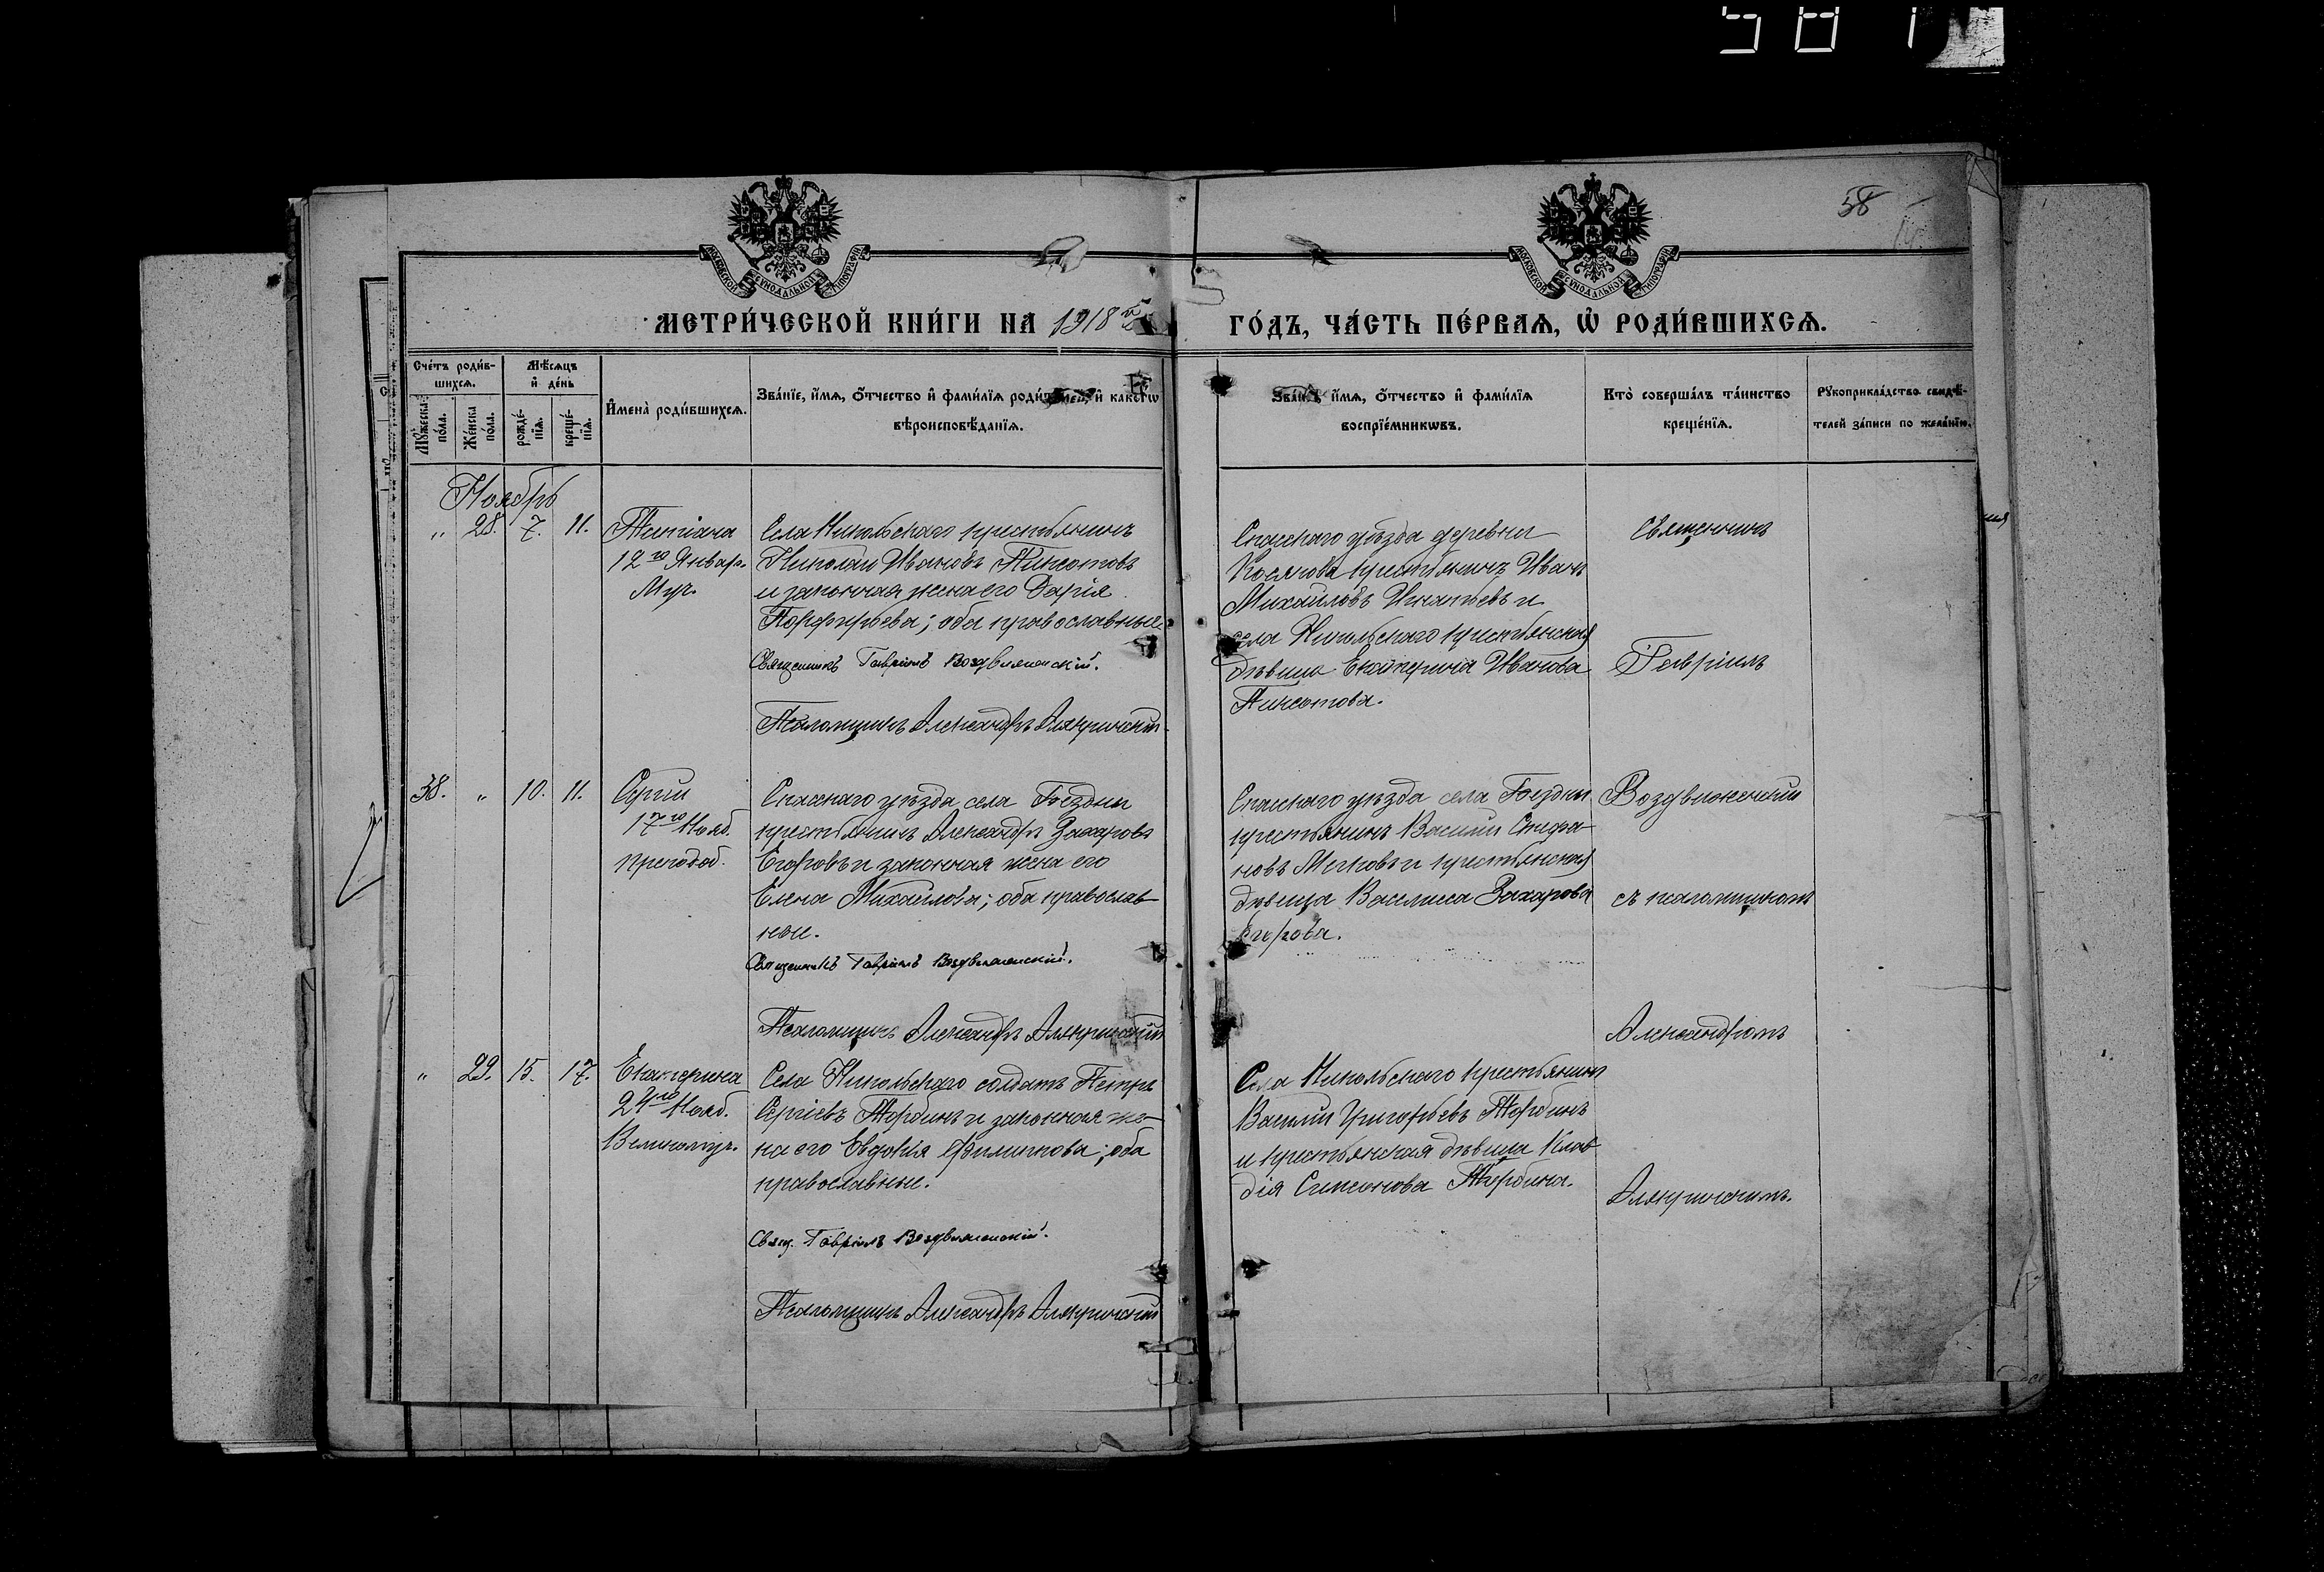 58
МОСКОВСКОЙ СѴНОДАЛЬНОЙ ТИПОГРАФІИ
МОСКОВСКОЙ СѴНОДАЛЬНОЙ ТИПОГРАФІИ
МЕТРИ́ЧЕСКОЙ КНИ́ГИ НА 1918й
ГО́ДЪ, ЧА́СТЬ ПЕ́РВАѦ, Ѡ҆ РОДИ́ВШИХСѦ.
Сче́тъ роди́в-
шихсѧ.
Му́жеска по́ла.
Же́нска по́ла.
Мѣ́сѧцъ
и҆ де́нь
рожде́-
нїѧ.
креще́-
нїѧ.
И҆мена̀ роди́вшихсѧ.
Зва́нїе, и҆́мѧ, ѻ҆́тчество и҆ фами́лїѧ роди́телей, и҆ како́гѡ
вѣроисповѣ́данїѧ.
Зва́нїе, и҆́мѧ, ѻ҆́тчество и҆ фами́лїѧ
воспрїе́мникѡвъ.
Кто̀ соверша́лъ та́инство
креще́нїѧ.
Рꙋкоприкла́дство свидѣ́-
телей за́писи по жела́нїю.
Ноябрь
„ 28. 7. 11.
Татіана
12го Январ.
Муч.
Села Никольскаго крестьянинъ
Николай Ивановъ Пиксотовъ
и законная жена его Дарія
Порфирьева; оба православные.
Священникъ Гавріилъ Воздвиженскій.
Псаломщикъ Александръ Алякринскій.
Спасскаго уѣзда деревни
крестьянинъ Иванъ
Михайловъ Игнатьевъ и
села Никольскаго крестьянская
дѣвица Екатерина Иванова
Пиксотова.
Священникъ
Гавріилъ
38. „ 10. 11.
17го Нояб.
преподоб.
Спасскаго уѣзда села Гоѣздни
крестьянинъ Александръ Захаровъ
Егоровъ и законная жена его
Елена Михайлова; оба православ-
ные.
Священникъ Гавріилъ Воздвиженскій.
Псаломщикъ Александръ Алякринскій
Спасскаго уѣзда села Гоѣздни
крестьянинъ Василій Стефа-
новъ и крестьянская
дѣвица Василисса Захарова
Егорова.
Воздвиженскій
съ псаломщикомъ
Александромъ
„ 29. 15. 17.
Екатерина
24го Нояб.
Великомуч.
Села Никольскаго солдатъ Петръ
Сергіевъ Тюрбинъ и законная же-
на его Евдокія Филиппова; оба
православные.
Свящ. Гавріилъ Воздвиженскій.
Псаломщикъ Александръ Алякринскій
Села Никольскаго крестьянинъ
Василій Григорьевъ Тюрбинъ
и крестьянская дѣвица Клав-
дія Симеонова Тюрбина.
Алякринскимъ.